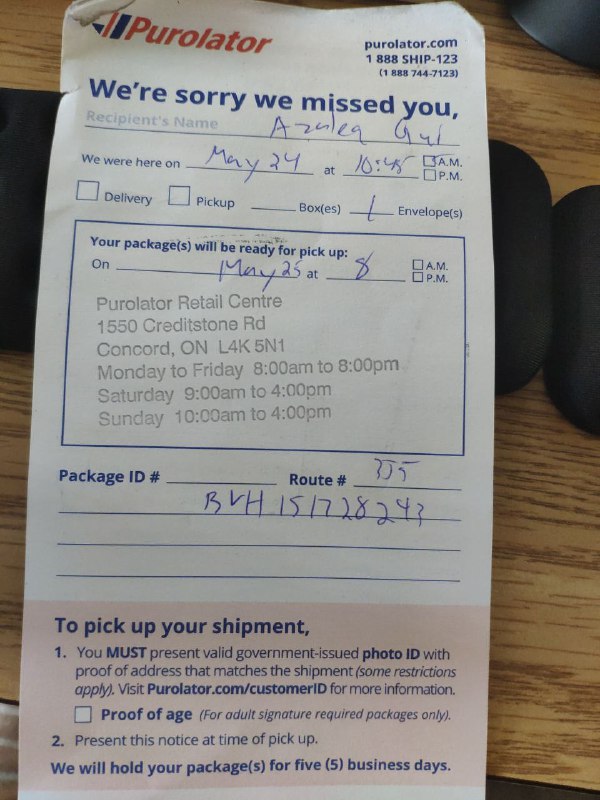 Purolator
purolator.com
1 888 SHIP-123
(1 888 744-7123)
We're sorry we missed you,
Recipient's Name Azalea Gul
We were here on May 24 at 10:45 A.M.
P.M.
Delivery Pickup Box(es) 1 Envelope(s)
Your package(s) will be ready for pick up:
On May 25 at 8 A.M.
P.M.
Purolator Retail Centre
1550 Creditstone Rd
Concord, ON L4K 5N1
Monday to Friday 8:00am to 8:00pm
Saturday 9:00am to 4:00pm
Sunday 10:00am to 4:00pm
Package ID # Route # 335
BVH 151728243
To pick up your shipment,
1. You MUST present valid government-issued photo ID with
proof of address that matches the shipment (some restrictions
apply). Visit Purolator.com/customerID for more information.
Proof of age (For adult signature required packages only).
2. Present this notice at time of pick up.
We will hold your package(s) for five (5) business days.